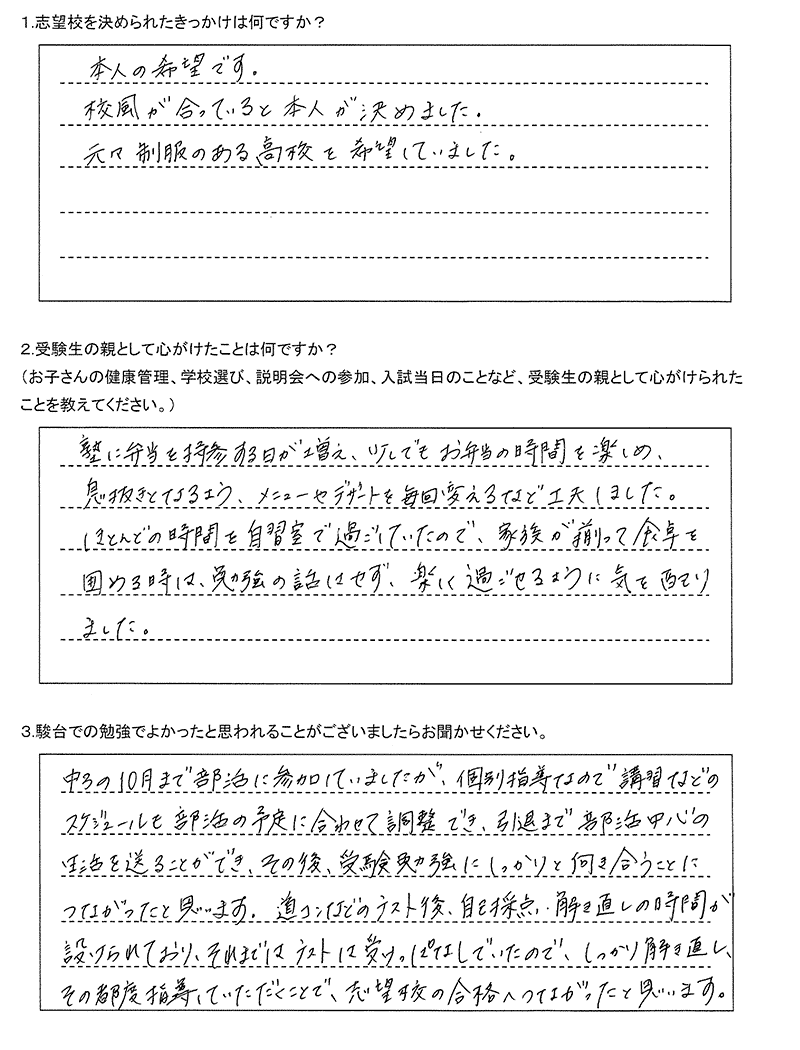 1.志望校を決められたきっかけは何ですか？
本人の希望です。
校風が合っていると本人が決めました。
元々制服のある高校を希望していました。
2.受験生の親として心がけたことは何ですか？
（お子さんの健康管理、学校選び、説明会への参加、入試当日のことなど、受験生の親として心がけられた
ことを教えてください。）
塾に弁当を持参する日が増え、少しでもお弁当の時間を楽しめ、
息抜きとなるよう、メニューやデザートを毎回変えるなど工夫しました。
ほとんどの時間を自習室で過ごしていたので、家族が揃って食卓を
囲める時は、勉強の話はせず、楽しく過ごせるように気を配り
ました。
3.駿台での勉強でよかったと思われることがございましたらお聞かせください。
中3の10月まで部活に参加していましたが、個別指導なので講習などの
スケジュールも部活の予定に合わせて調整でき、引退まで部活中心の
生活を送ることができ、その後、受験勉強にしっかりと向き合うことに
つながったと思います。道コンなどのテスト後、自己採点、解き直しの時間が
設けられており、それまではテストは受けっぱなしでいたので、しっかり解き直し、
その都度指導していただくことで、志望校の合格へつながったと思います。